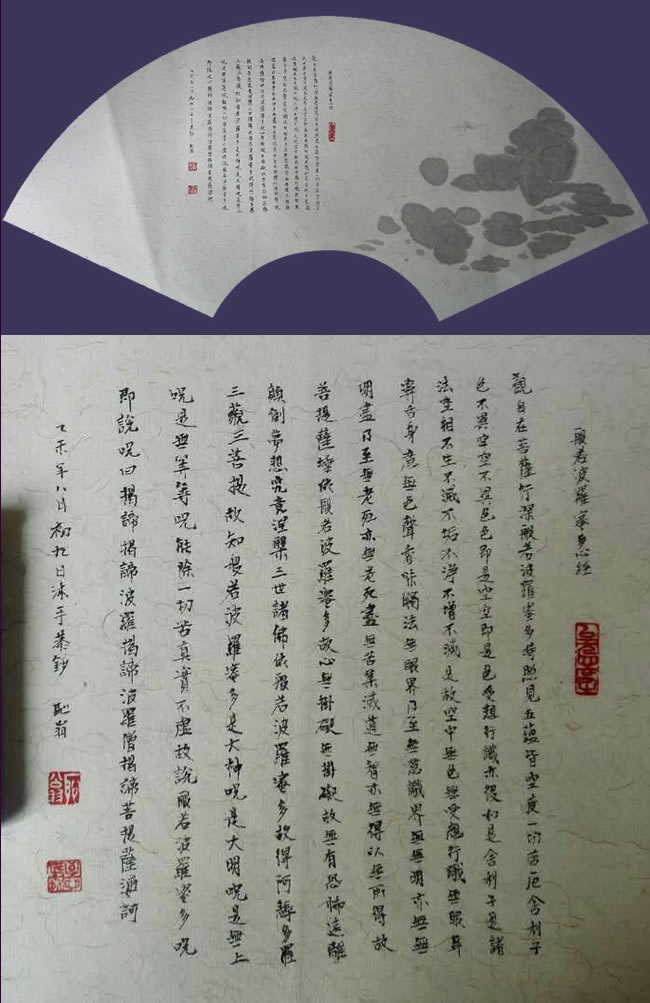 般若波羅蜜多心經
觀自在菩薩行深般若波羅蜜多時照見五蘊皆空度一切苦厄舍利子
色不異空空不異色色即是空空即是色受想行識亦復如是舍利子是諸
法空相不生不滅不垢不淨不增不減是故空中無色無受想行識無眼耳
鼻舌身意無色聲香味觸法無眼界乃至無意識界無無明亦無無
明盡乃至無老死亦無老死盡無苦集滅道無智亦無得以無所得故
菩提薩埵依般若波羅蜜多故心無掛礙無掛礙故無有恐怖遠離
顛倒夢想究竟涅槃三世諸佛依般若波羅蜜多故得阿耨多羅
三藐三菩提故知般若波羅蜜多是大神呪是大明呪是無上
呪是無等等呪能除一切苦真實不虛故說般若波羅蜜多呪
即說呪曰揭諦揭諦波羅揭諦波羅僧揭諦菩提薩婆訶
乙未年八月初九日沐手恭鈔 恥翁
恥翁